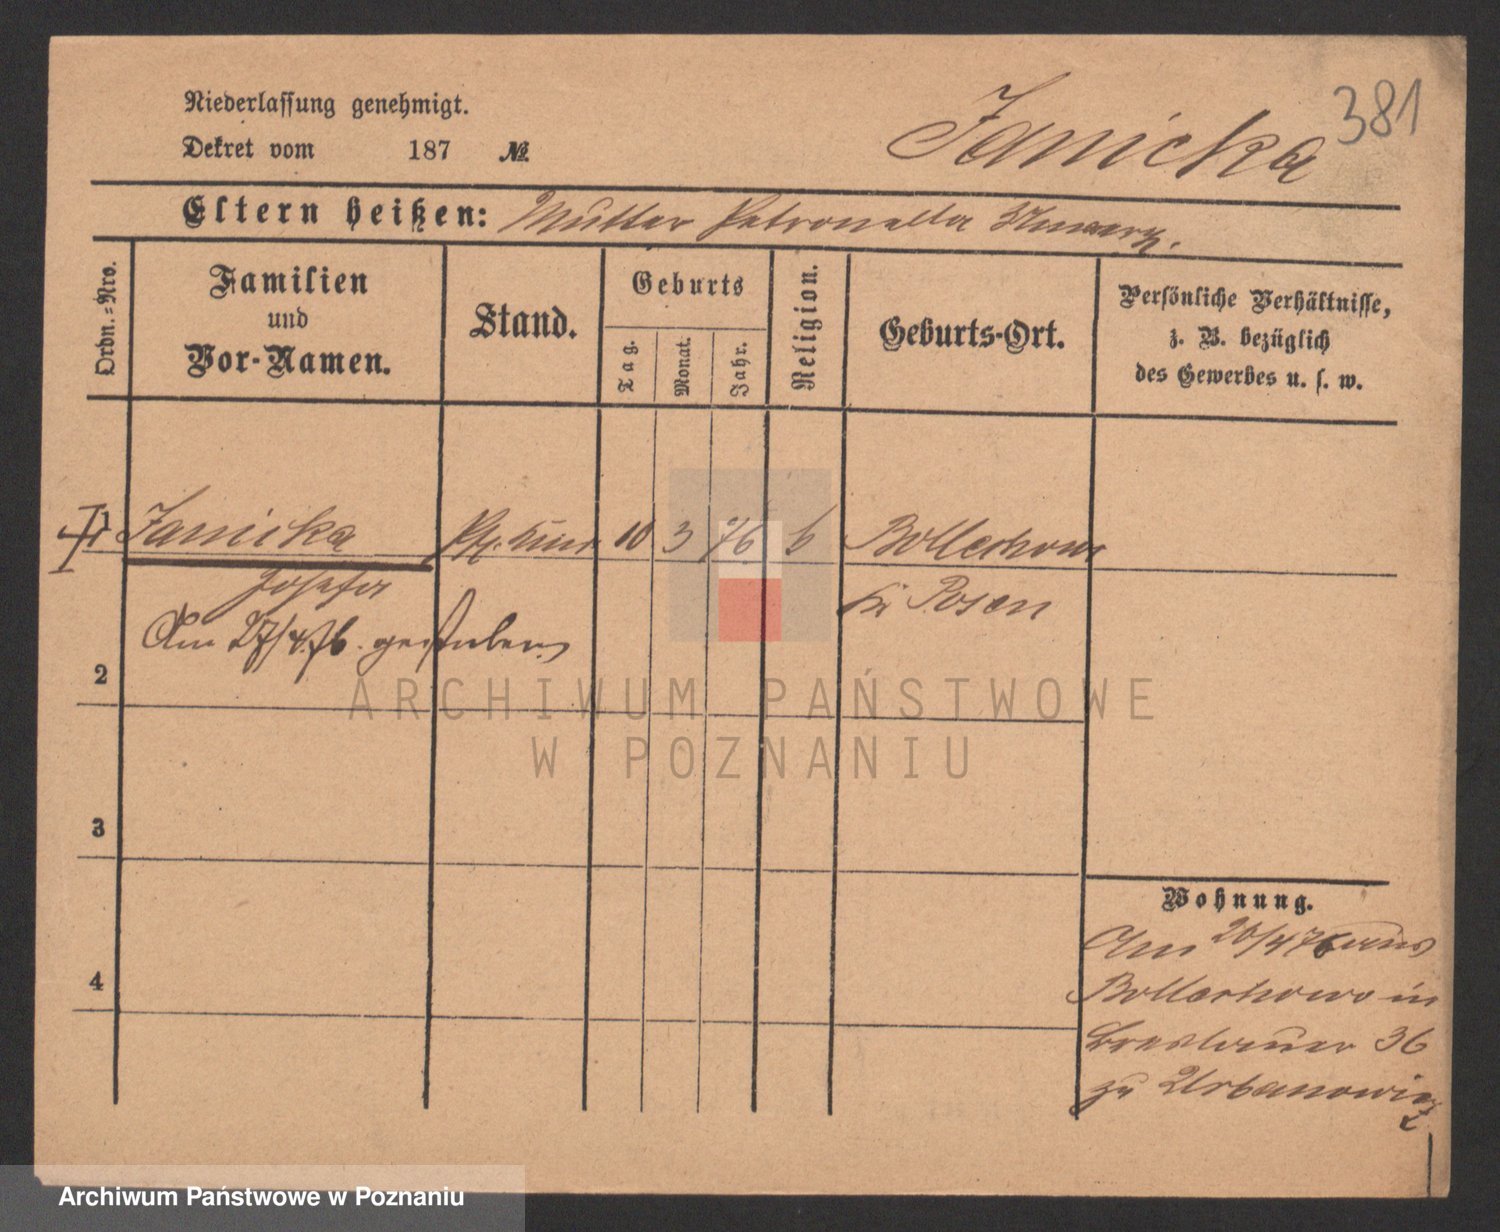 Niederlassung genehmigt.
Dekret vom 187 №
Janicka
381
Eltern heißen: Mutter Petronella
Ordn.=Nro.
Familien
und
Vor-Namen.
Stand.
Geburts
Tag.
Monat.
Jahr.
Religion.
Geburts-Ort.
Persönliche Verhältnisse,
z. B. bezüglich
des Gewerbes u. s. w.
1 Janicka 10 3 76
Josefa
bei Posen
Am 27/4.76. gestorben
2
3
4
Wohnung.
Am 26/4 76 aus
in
Breslauer 36
zu Urbanowicz
ARCHIWUM PAŃSTWOWE
W POZNANIU
Archiwum Państwowe w Poznaniu